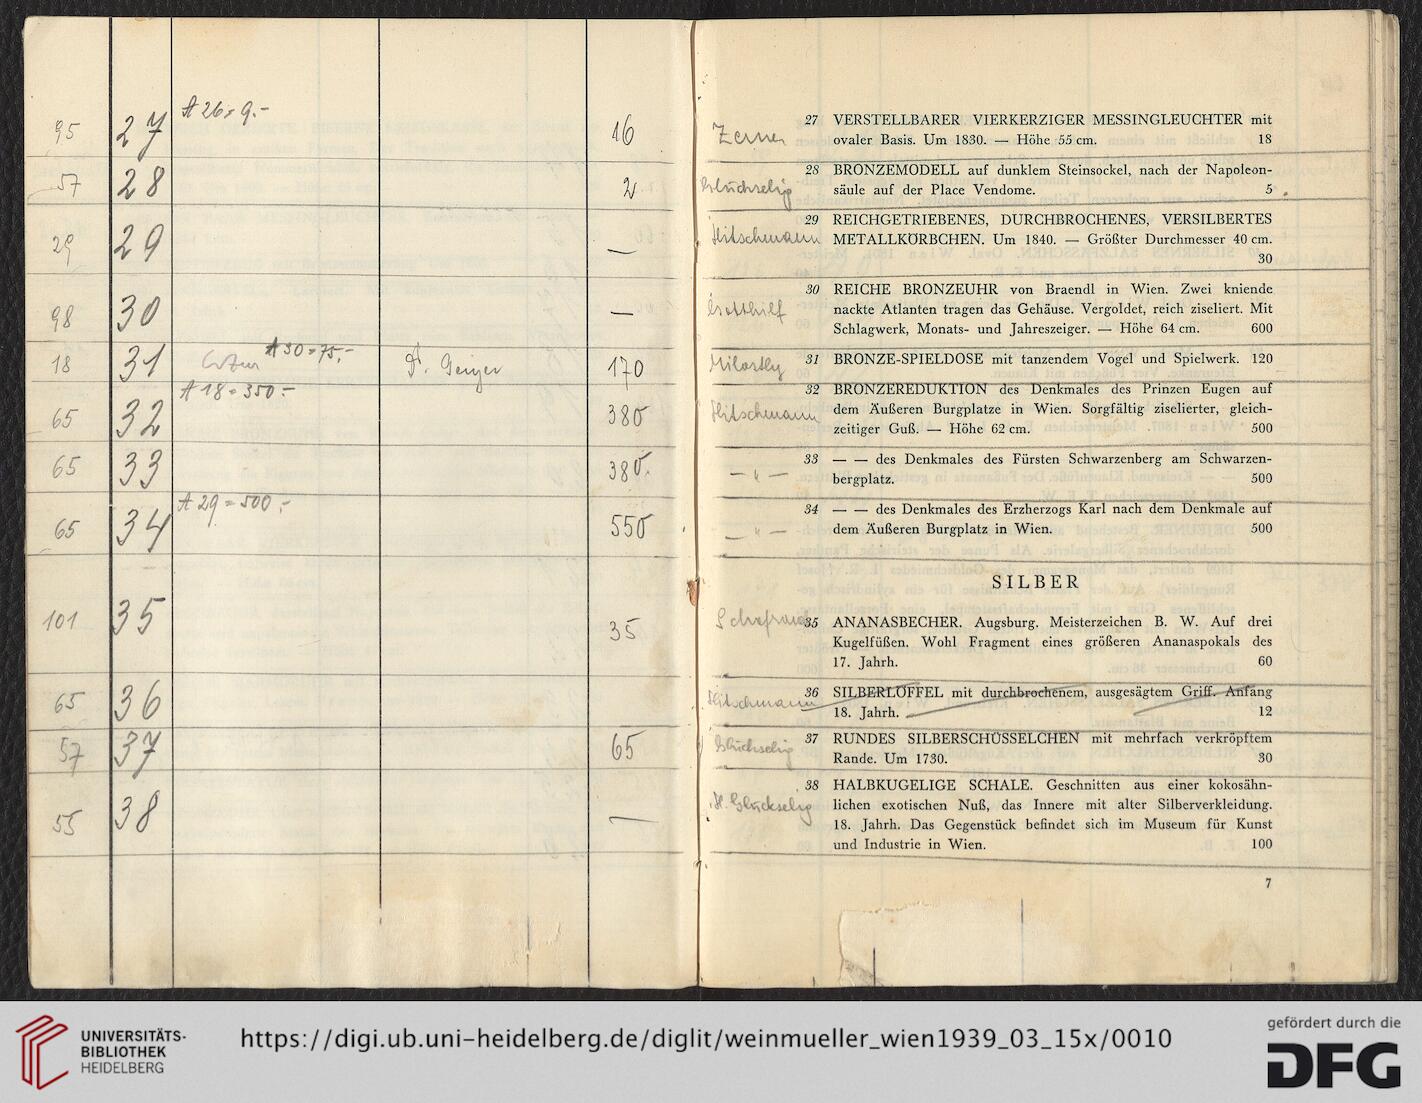 A 26 = 9.-
95 27 16
57 28 2
29 29 —
98 30 —
A 30 = 75,-
18 31 Dr. Geiger 170
A 18 = 350.-
65 32 380
65 33 380.
A 29 = 500,-
65 34 550
101 35 35
65 36
57 37 65
55 38 —
Zerner
27 VERSTELLBARER VIERKERZIGER MESSINGLEUCHTER mit
ovaler Basis. Um 1830. — Höhe 55 cm. 18
Glückselig
28 BRONZEMODELL auf dunklem Steinsockel, nach der Napoleon-
säule auf der Place Vendome. 5
Hitschmann
29 REICHGETRIEBENES, DURCHBROCHENES, VERSILBERTES
METALLKÖRBCHEN. Um 1840. — Größter Durchmesser 40 cm.
30
Gotthilf
30 REICHE BRONZEUHR von Braendl in Wien. Zwei kniende
nackte Atlanten tragen das Gehäuse. Vergoldet, reich ziseliert. Mit
Schlagwerk, Monats- und Jahreszeiger. — Höhe 64 cm. 600
31 BRONZE-SPIELDOSE mit tanzendem Vogel und Spielwerk. 120
Hitschmann
32 BRONZEREDUKTION des Denkmales des Prinzen Eugen auf
dem Äußeren Burgplatze in Wien. Sorgfältig ziselierter, gleich-
zeitiger Guß. — Höhe 62 cm. 500
— " —
33 — — des Denkmales des Fürsten Schwarzenberg am Schwarzen-
bergplatz. 500
— " —
34 — — des Denkmales des Erzherzogs Karl nach dem Denkmale auf
dem Äußeren Burgplatz in Wien. 500
SILBER
35 ANANASBECHER. Augsburg. Meisterzeichen B. W. Auf drei
Kugelfüßen. Wohl Fragment eines größeren Ananaspokals des
17. Jahrh. 60
Hitschmann
36 SILBERLÖFFEL mit durchbrochenem, ausgesägtem Griff. Anfang
18. Jahrh. 12
Glückselig
37 RUNDES SILBERSCHÜSSELCHEN mit mehrfach verkröpftem
Rande. Um 1730. 30
H. Glückselig
38 HALBKUGELIGE SCHALE. Geschnitten aus einer kokosähn-
lichen exotischen Nuß, das Innere mit alter Silberverkleidung.
18. Jahrh. Das Gegenstück befindet sich im Museum für Kunst
und Industrie in Wien. 100
7
UNIVERSITÄTS-
BIBLIOTHEK
HEIDELBERG
https://digi.ub.uni-heidelberg.de/diglit/weinmueller_wien1939_03_15x/0010
gefördert durch die
DFG